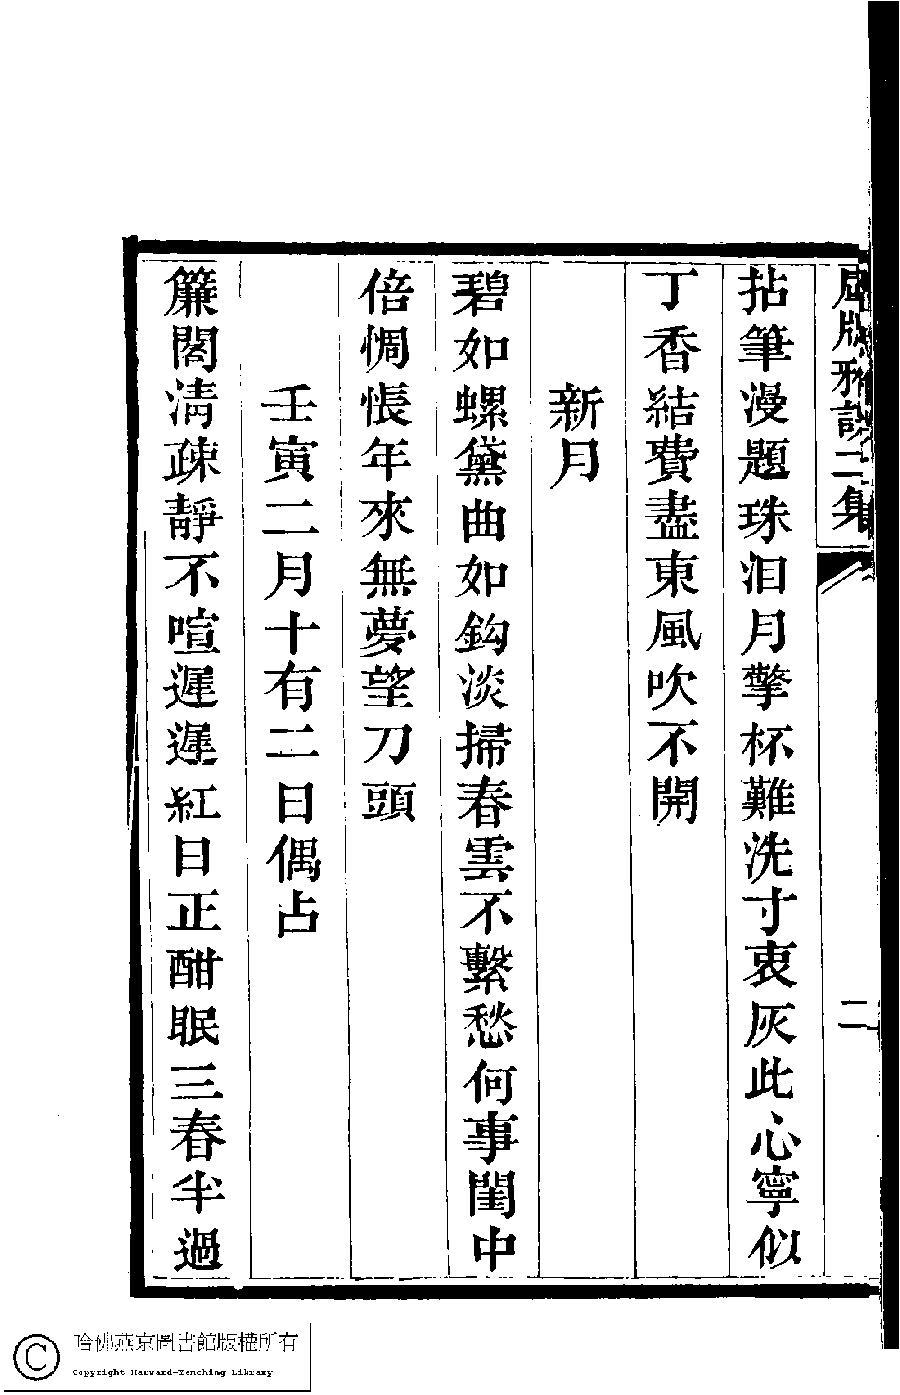 二集
二
拈筆漫題珠泪月擎杯難洗寸衷灰此心寧似
丁香結費盡東風吹不開
新月
碧如螺黛曲如鈎淡掃春雲不繫愁何事閨中
倍惆悵年來無夢望刀頭
壬寅二月十有二日偶占
簾閣清疎靜不喧遲遲紅日正酣眠三春半過
哈佛燕京圖書館版權所有
Copyright Harvard-Yenching Library